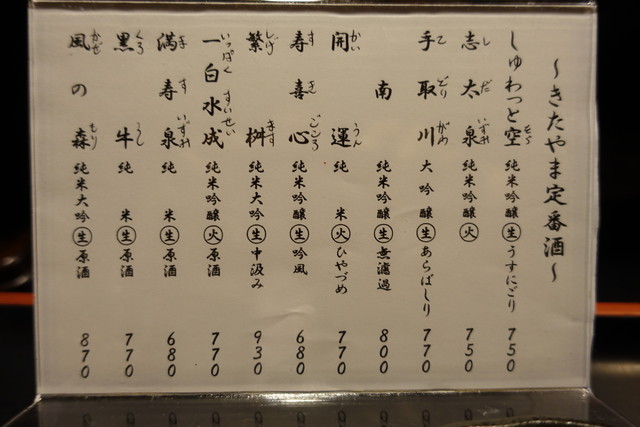 ～きたやま定番酒～
しゅわっと空 そら 純米吟醸 生 うすにごり 750
志太泉 しだいずみ 純米吟醸 火 750
手取川 てどりがわ 大吟醸 生 あらばしり 770
南 純米吟醸 生 無濾過 800
開運 かいうん 純米 火 ひやづめ 770
寿喜心 すきごころ 純米吟醸 生 吟風 680
繁桝 しげます 純米大吟 生 中汲み 930
一白水成 いっぱくすいせい 純米吟醸 火 原酒 770
満寿泉 ますいずみ 純米 生 原酒 680
黒牛 くろうし 純米 生 原酒 770
風の森 かぜもり 純米大吟 生 原酒 870